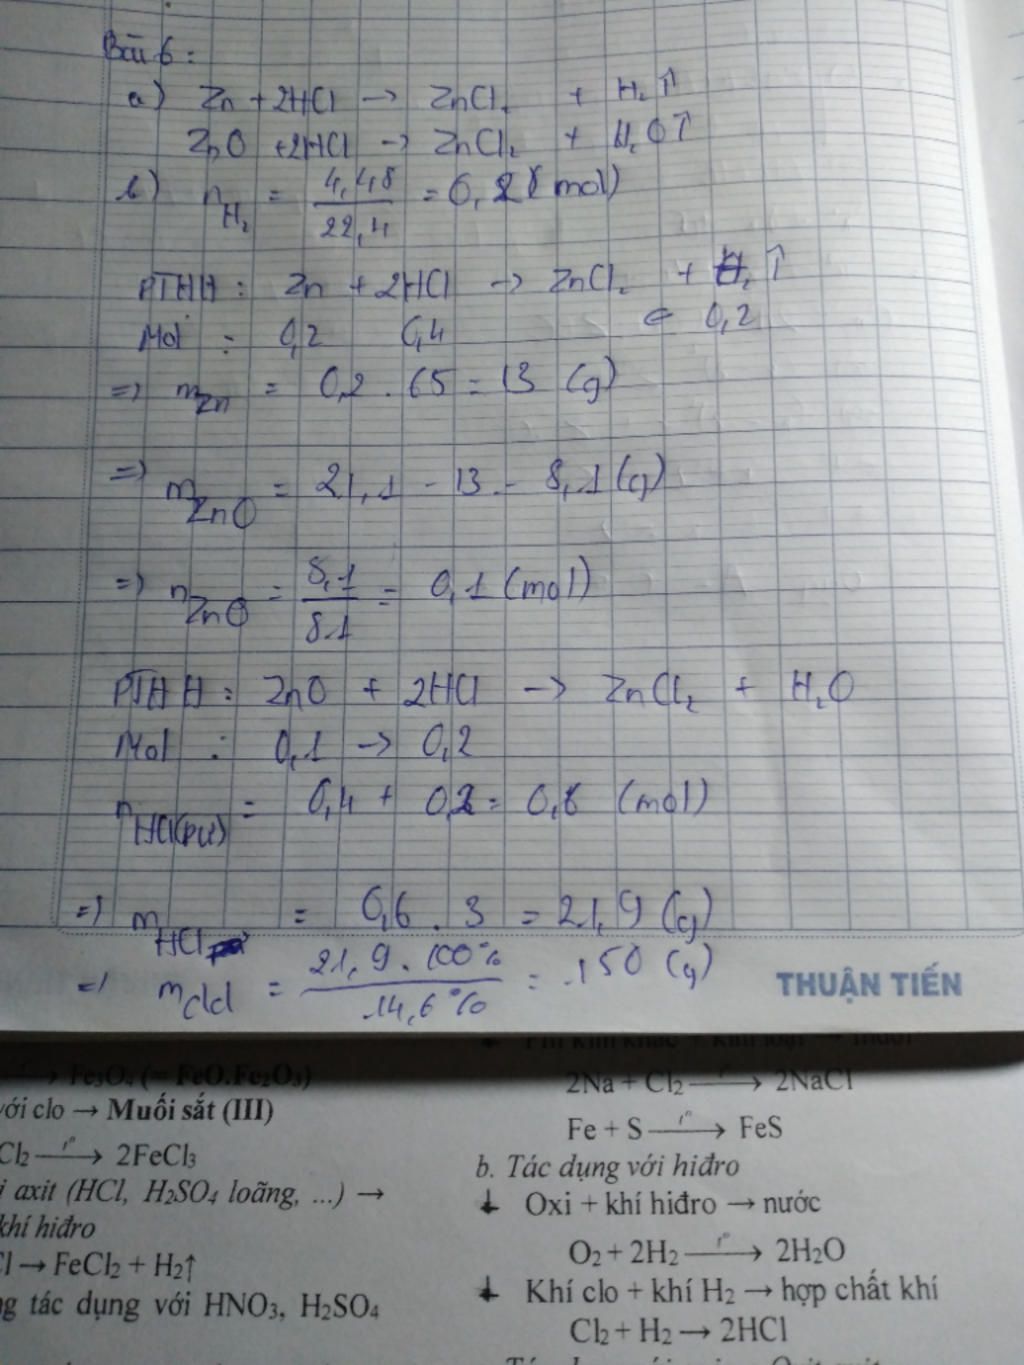 Bài 6 :
a) Zn + 2HCl → ZnCl₂ + H₂ ↑
ZnO + 2HCl → ZnCl₂ + H₂O ↑
b) n_H₂ = 4,48 / 22,4 = 0,2 ( mol)
PTHH : Zn + 2HCl → ZnCl₂ + H₂ ↑
Mol : 0,2 0,4 ← 0,2
=) m_Zn = 0,2 . 65 = 13 (g)
=) m_ZnO = 21,1 - 13 = 8,1 (g)
=) n_ZnO = 8,1 / 81 = 0,1 (mol)
PTHH : ZnO + 2HCl → ZnCl₂ + H₂O
Mol : 0,1 → 0,2
n_HCl(pư) = 0,4 + 0,2 = 0,6 (mol)
=) m_HCl = 0,6 . 3 = 21,9 (g)
=) m_dd = 21,9 . 100% / 14,6% = 150 (g)
THUẬN TIẾN
Fe₃O₄ (= FeO.Fe₂O₃)
với clo → Muối sắt (III)
Cl₂ —t°→ 2FeCl₃
axit (HCl, H₂SO₄ loãng, ...) →
khí hiđro
→ FeCl₂ + H₂↑
tác dụng với HNO₃, H₂SO₄
Phi kim khác + kim loại → muối
2Na + Cl₂ —t°→ 2NaCl
Fe + S —t°→ FeS
b. Tác dụng với hiđro
Oxi + khí hiđro → nước
O₂ + 2H₂ —t°→ 2H₂O
Khí clo + khí H₂ → hợp chất khí
Cl₂ + H₂ → 2HCl